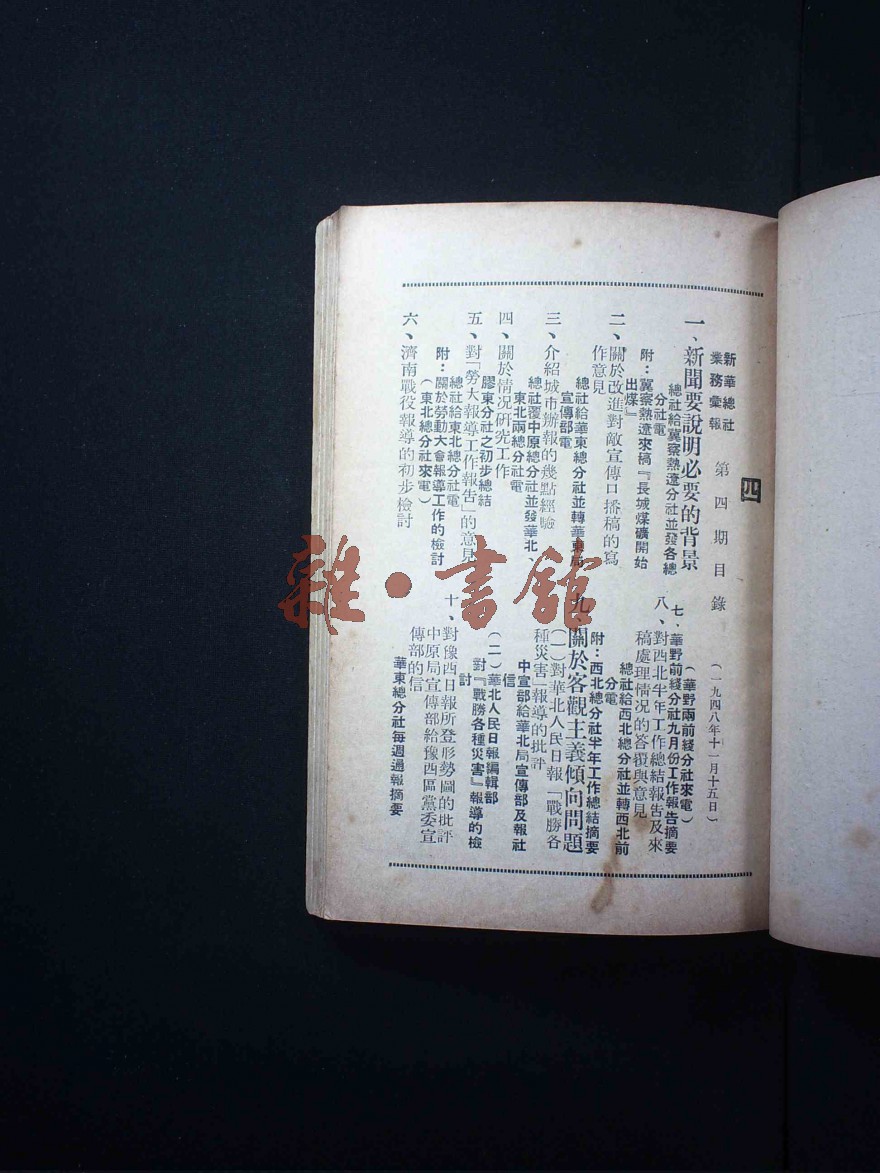 四
新華總社
業務彙報
第四期目錄
(一九四八年十一月十五日)
一、新聞要說明必要的背景
總社給冀察熱遼分社並發各總
分社電
附：冀察熱遼來稿『長城煤礦開始
出煤』
二、關於改進對敵宣傳口播稿的寫
作意見
總社給華東總分社並轉華東局
宣傳部電
三、介紹城市辦報的幾點經驗
總社覆中原總分社並發華北、
東北兩總分社電
四、關於情況研究工作
膠東分社之初步總結
五、對「勞大報導工作報告」的意見
總社給東北總分社電
附：關於勞動大會報導工作的檢討
(東北總分社來電)
六、濟南戰役報導的初步檢討
(華野兩前綫分社來電)
七、華野前綫分社九月份工作報告摘要
八、對西北半年工作總結報告及來
稿處理情況的答覆與意見
總社給西北總分社並轉西北前
分電
附：西北總分社半年工作總結摘要
九、關於客觀主義傾向問題
(一)對華北人民日報「戰勝各
種災害」報導的批評
中宣部給華北局宣傳部及報社
信
(二)華北人民日報編輯部
對『戰勝各種災害』報導的檢
討
十、對豫西日報所登形勢圖的批評
中原局宣傳部給豫西區黨委宣
傳部的信
華東總分社每週通報摘要
雜·書館